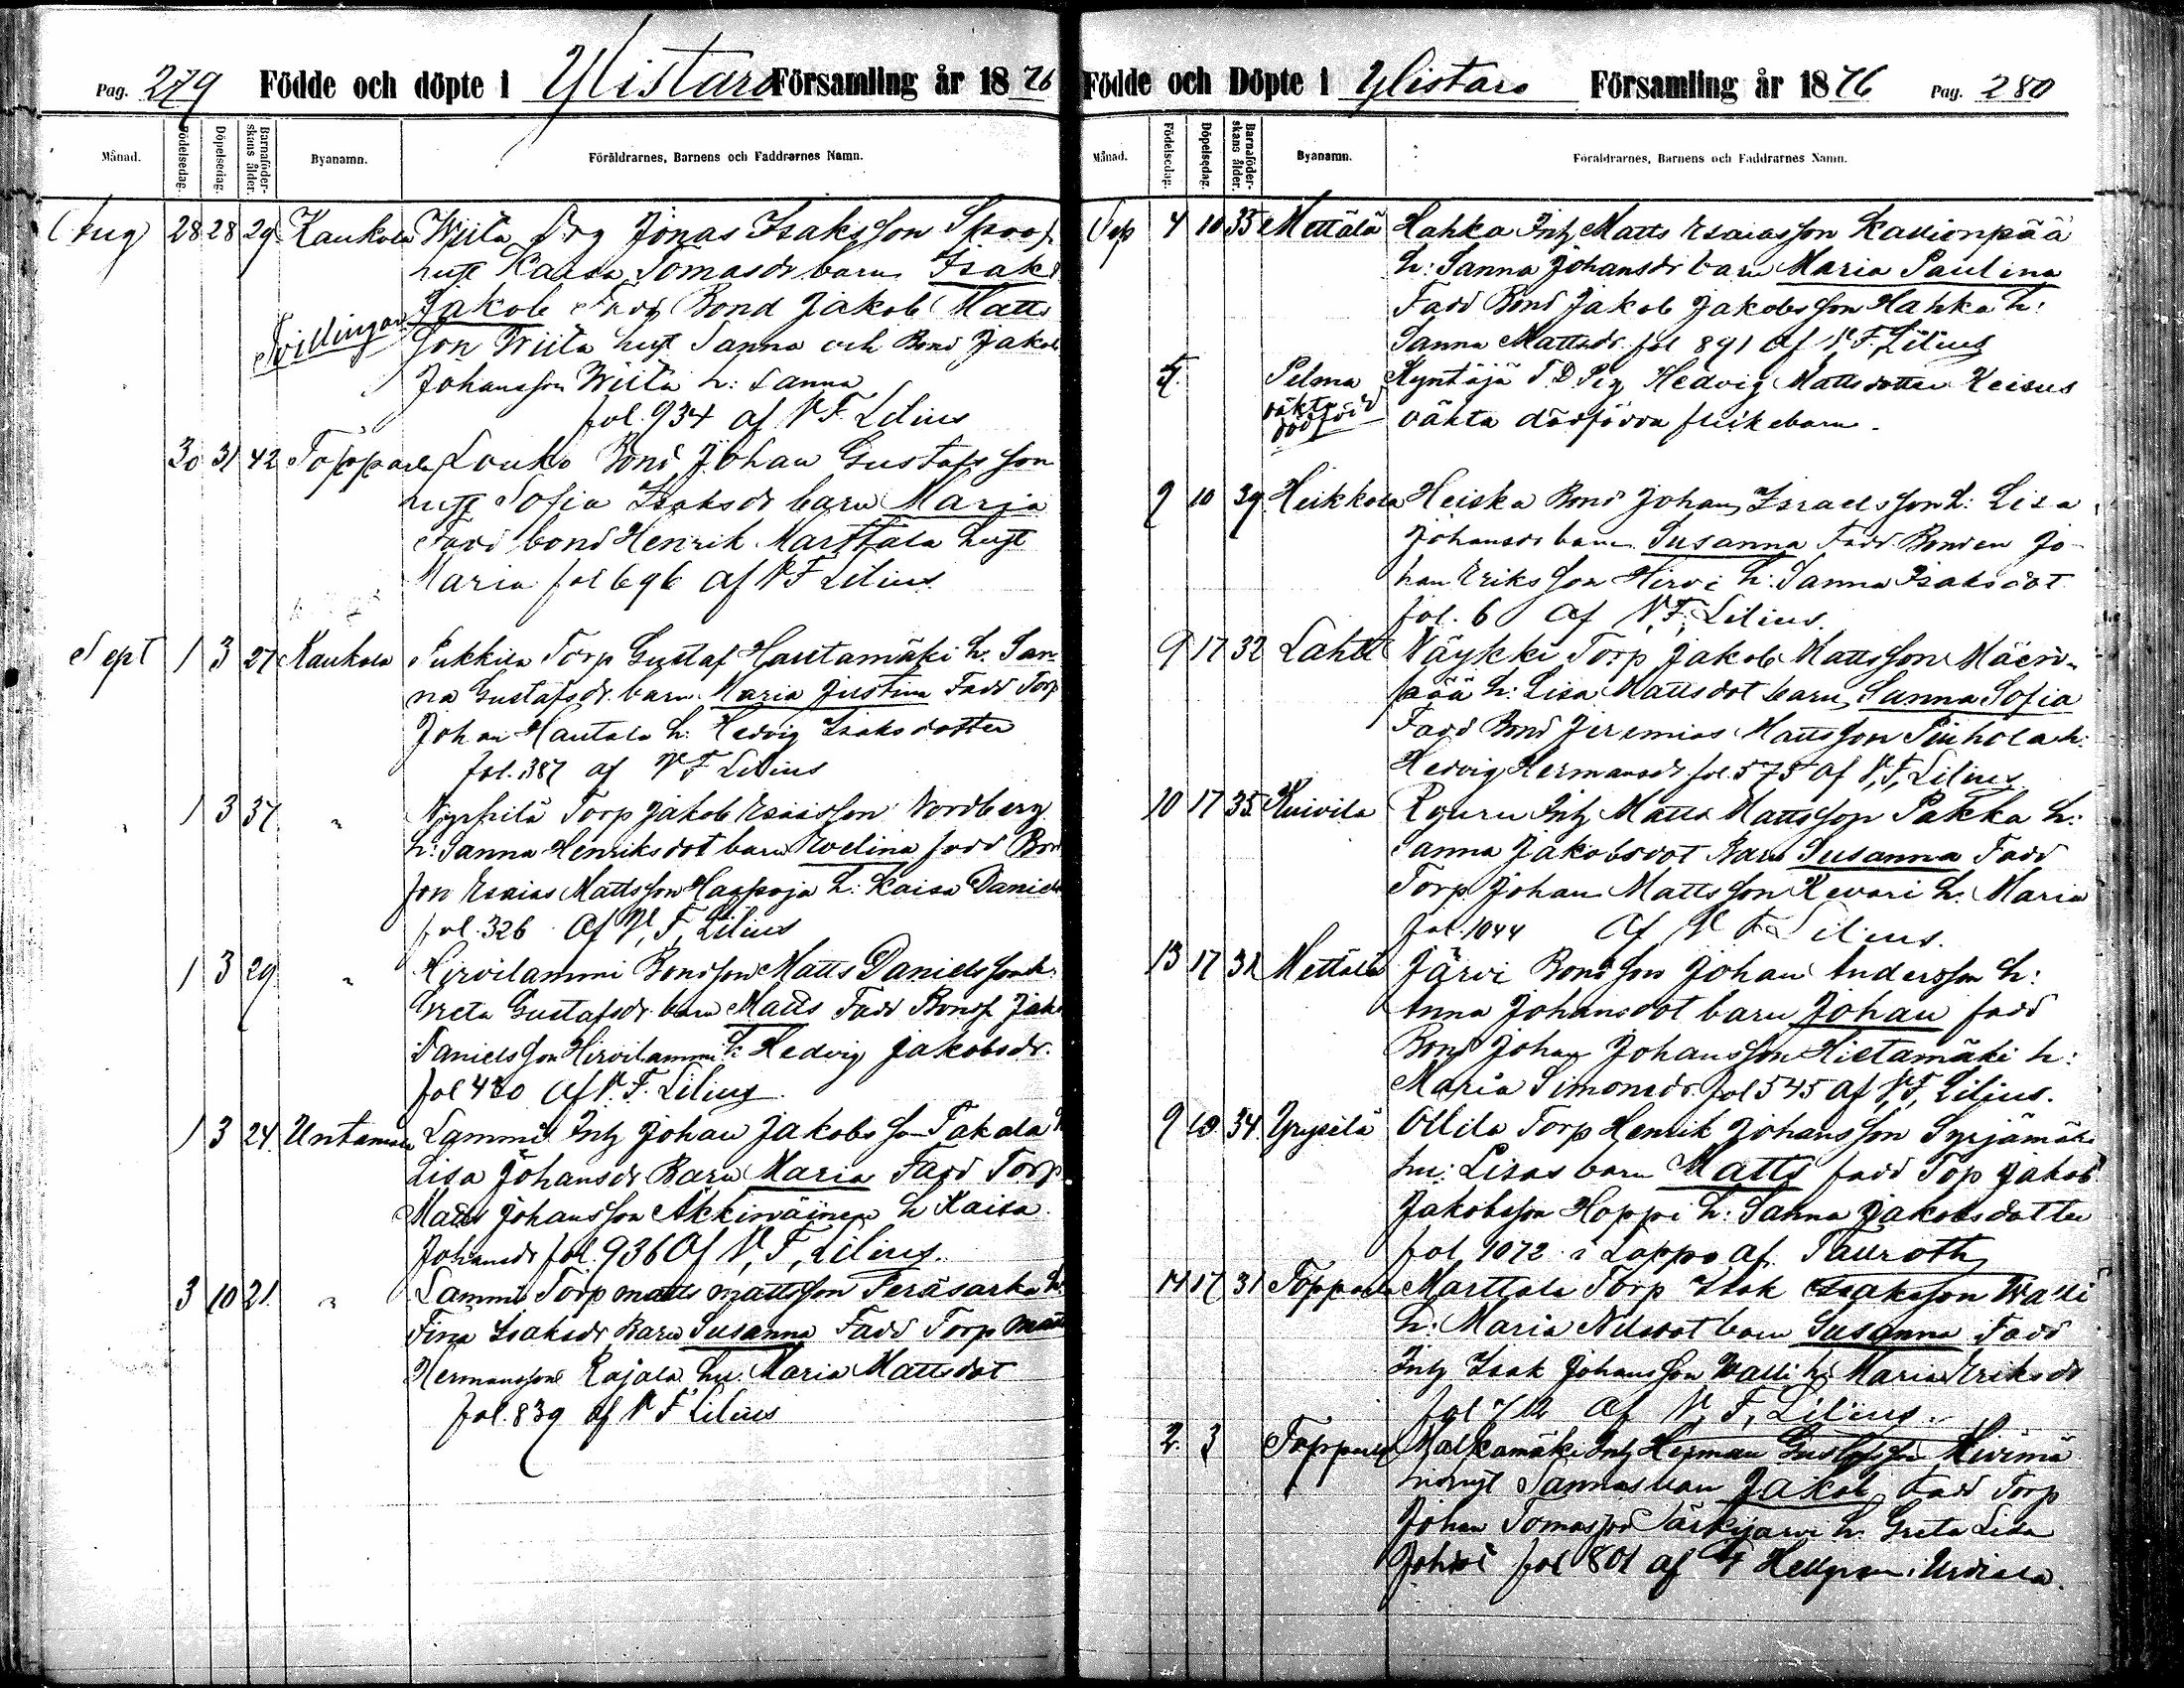 Pag. 279 Födde och döpte i Ylistaro Församling år 1876
Månad. Födelsedag. Döpelsedag. Barnaföder-skans ålder. Byanamn. Föräldrarnes, Barnens och Faddrarnes Namn.
Aug 28 28 29 Kaukola Wiita Drg Jonas Isaksson Skoof
hust Kaisa Tomasdr barn Isak &
Tvillingar Jakob Fadd Bond Jakob Matts
son Wiita hust Sanna och Bond Jakob
Johansson Wiita h: Sanna
fol. 934 af V F Lilius
30 31 42 Toppala Louko Bond Johan Gustafsson
hust Sofia Isaksdr barn Marja
Fadd bond Henrik Marttala hust
Maria fol 696 af V F Lilius
Sept 1 3 27 Kaukola Pukkila Torp Gustaf Hautamäki h: San
na Gustafsdr. barn Maria Justina Fadd Torp
Johan Hautala h: Hedvig Isaksdotter
fol. 387 af V F Lilius
1 3 37 " Torp Jakob Esaisson Nordberg
h: Sanna Henriksdot barn Evelina fadd Bon
son Esaias Mattsson Haapoja h: Kaisa Daniels
fol. 326 af V, F, Lilius
1 3 29 " Hirvilammi Bondson Matts Danielsson h:
Greta Gustafsdr. barn Matts Fadd Bonds Jak
Danielsson Hirvilammi h: Hedvig Jakobsdr.
fol 420 af V. F. Lilius
1 3 24 Untamala Lammi Inh Johan Jakobsson Takala h
Lisa Johansdr Barn Maria Fadd Torp
Matts Johansson Akkinäinen h Kaisa
Johansdr fol. 936 Af V, F, Lilius.
3 10 21. " Lammi Torp matts mattsson Peräsarka h:
Fina Isaksdr Barn Susanna Fadd Torp Matts
Hermansson Rajala hu. Maria Mattsdot
fol. 839 af V F Lilius
Födde och Döpte i Ylistaro Församling år 1876 Pag. 280
Månad. Födelsedag. Döpelsedag. Barnaföder-skans ålder. Byanamn. Föräldrarnes, Barnens och Faddrarnes Namn.
Sep 4 10 35 Mettälä Hahka Inh Matts Esaiasson Kallionpää
h: Sanna Johansdr barn Maria Paulina
Fadd Bond Jakob Jakobsson Hahka h:
Sanna Mattsdr. fol 891 af V, F, Lilius
5. Pelma Kyntäjä T. D. Pig Hedvig Mattsdotter Keisus
oäkta dödföd oäkta dödfödda flickebarn.
9 10 39 Heikkola Heiska Bond Johan Israelsson h: Lisa
Johansdr barn Susanna Fadd. Bonden Jo
han Eriksson Hirvi h: Sanna Isaksdot
fol. 6 Af V, F, Lilius.
9 17 32 Lahti Näykki Torp Jakob Mattsson Mäen-
pää h: Lisa Mattsdot barn Sanna Sofia
Fadd Bond Jeremias Mattsson Siuhola h:
Hedvig Hermansdr. fol. 575 af V, F, Lilius
10 17 35 Kuivila Inh Matts Mattsson Pakka h:
Sanna Jakobsdot Barn Susanna Fadd
Torp. Johan Mattsson Kevari h. Maria
fol. 1044 Af V F Lilius.
13 17 31 Mettälä Järvi Bondson Johan Andersson h:
Anna Johansdot barn Johan fadd
Bond Johan Johansson Hietamäki h:
Maria Simonsdr. fol 545 af V, F, Lilius.
9 10 34 Yrysilä Ollila Torp Henrik Johansson Syrjämäki
hu: Lisas barn Matts fadd Top Jakob
Jakobsson Hoppi h: Sanna Jakobsdotter
fol 1072 i Lappo af Tallroth
14 17 31 Toppala Marttala Torp Isak Isaksson Walli
h: Maria Nilsdot barn Susanna Fadd
Inh Isak Johansson Walli h: Maria Eriksdr
fol af V, F, Lilius.
2. 3 Toppala Malkamäki Inh Herman Gustafsson
hust Sannas barn Jakob Fadd Torp
Johan Tomasson Särkijärvi h. Greta Lisa
Johsd fol 801 af F Hellgren